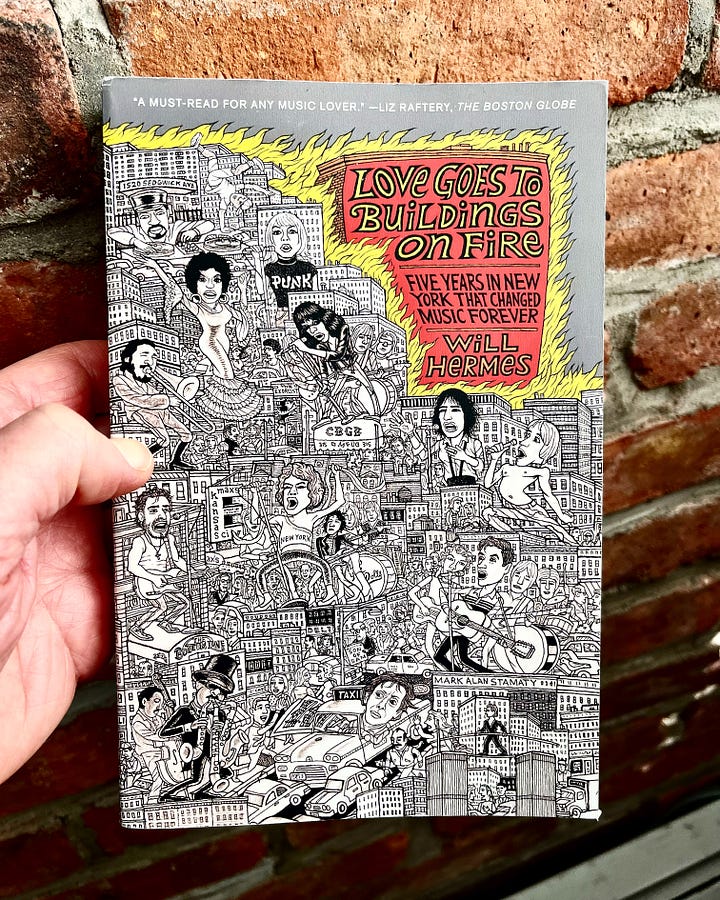 "A MUST-READ FOR ANY MUSIC LOVER." —LIZ RAFTERY, THE BOSTON GLOBE
LOVE GOES TO
BUILDINGS
ON FIRE
FIVE YEARS IN NEW
YORK THAT CHANGED
MUSIC FOREVER
WILL
HERMES
1520 SEDGWICK AVE
PUNK
CBGB
315
315
max's
kansas
NEW YORK
MARK ALAN STAMATY
TAXI